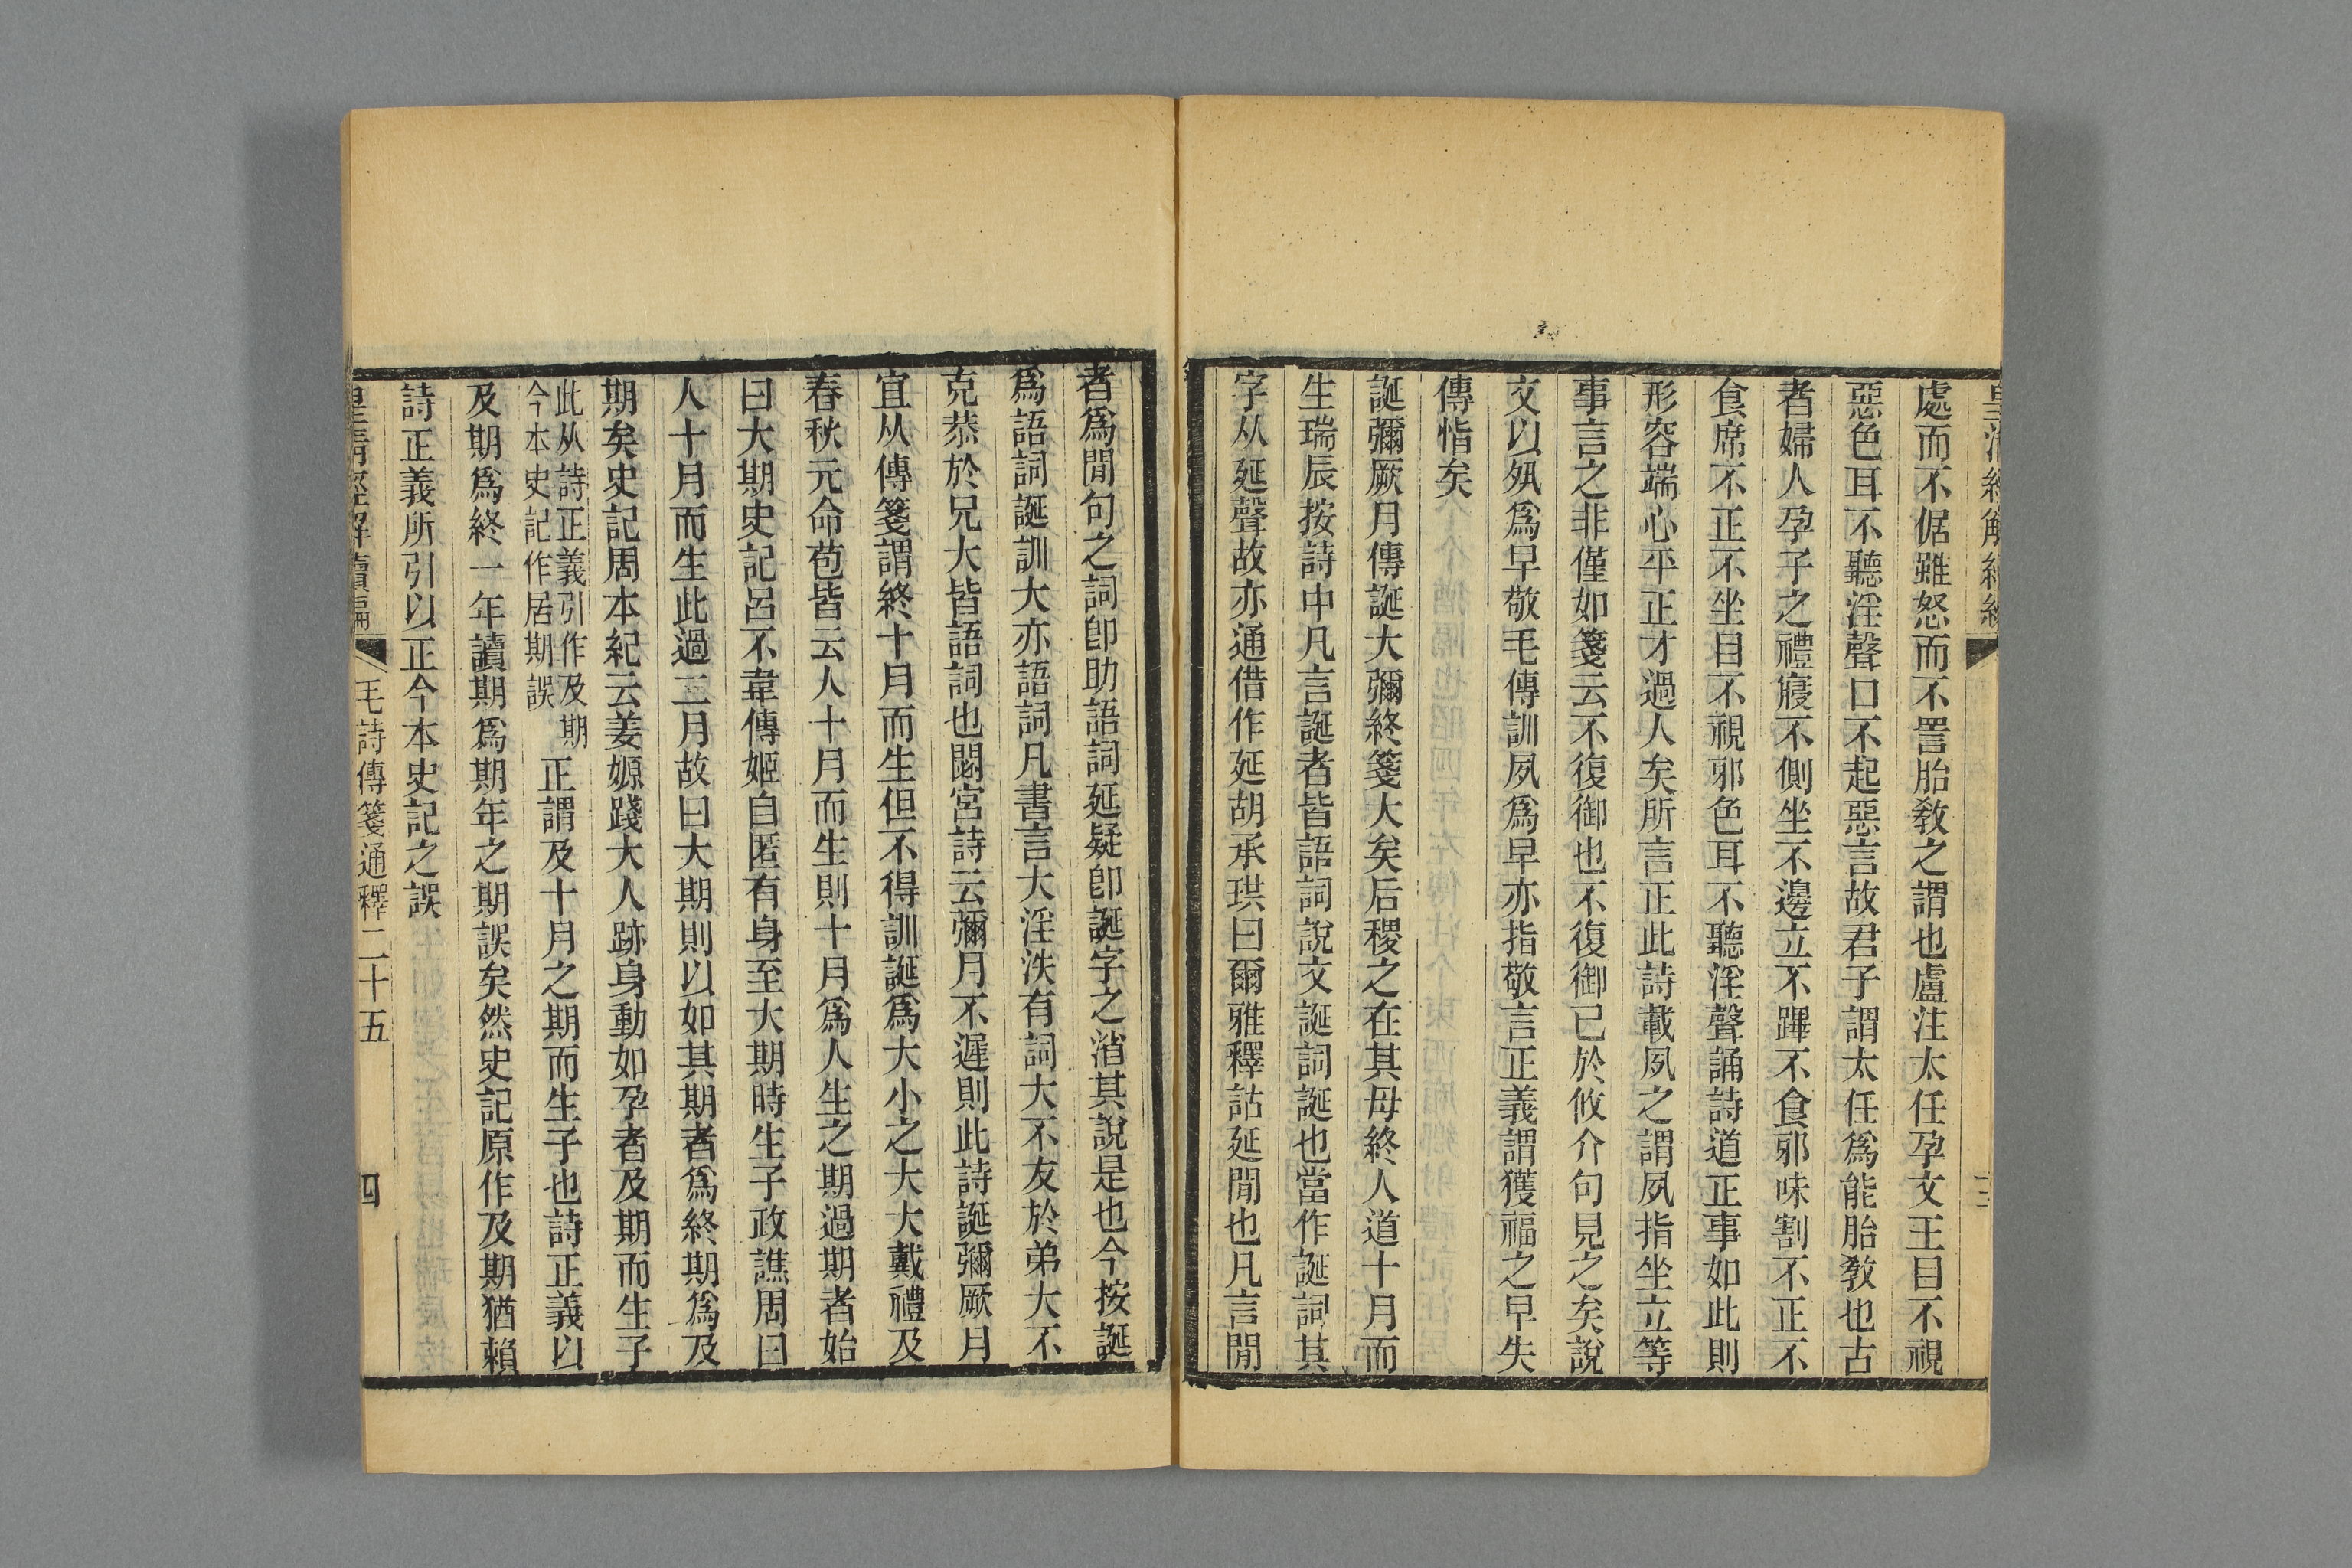 處而不倨雖怒而不詈胎敎之謂也盧注太任孕文王目不視
惡色耳不聽淫聲口不起惡言故君子謂太任爲能胎敎也古
者婦人孕子之禮寢不側坐不邊立不蹕不食邪味割不正不
食席不正不坐目不視邪色耳不聽淫聲誦詩道正事如此則
形容端心平正才過人矣所言正此詩載夙之謂夙指坐立等
事言之非僅如箋云不復御也不復御已於攸介句見之矣說
文以夙爲早敬毛傳訓夙爲早亦指敬言正義謂獲福之早失
傳恉矣
誕彌厥月傳誕大彌終箋大矣后稷之在其母終人道十月而
生瑞辰按詩中凡言誕者皆語詞說文誕詞誕也當作誕詞其
字从延聲故亦通借作延胡承珙曰爾雅釋詁延閒也凡言閒
者爲閒句之詞卽助語詞延疑卽誕字之消其說是也今按誕
爲語詞誕訓大亦語詞凡書言大淫泆有詞大不友於弟大不
克恭於兄大皆語詞也閟宮詩云彌月不遲則此詩誕彌厥月
宜从傳箋謂終十月而生但不得訓誕爲大小之大大戴禮及
春秋元命苞皆云人十月而生則十月爲人生之期過期者始
曰大期史記呂不韋傳姬自匿有身至大期時生子政譙周曰
人十月而生此過二月故曰大期則以如其期者爲終期爲及
期矣史記周本紀云姜嫄踐大人跡身動如孕者及期而生子
此从詩正義引作及期
今本史記作居期誤
正謂及十月之期而生子也詩正義以
及期爲終一年讀期爲期年之期誤矣然史記原作及期猶賴
詩正義所引以正今本史記之誤
皇清經解續編
毛詩傳箋通釋二十五
四